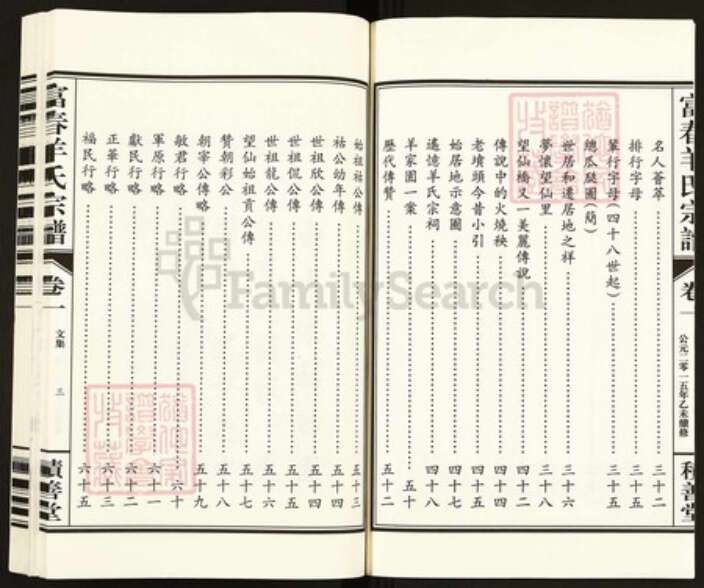 富春羊氏宗譜
卷一
公元二零一五年乙未續修
積善堂
名人薈萃 三十二
排行字母 三十五
輩行字母(四十八世起) 三十五
總瓜瓞圖(簡)
世居和遷居地之祥 三十六
夢懷望仙里 三十八
望仙橋又一美麗傳說 四十二
傳說中的火燒秧 四十四
老墳頭今昔小引 四十七
始居地示意圖 四十八
遙憶羊氏宗祠 四十八
羊家園一案 五十
歷代傳贊 五十二
始祖祜公傳 五十三
祜公幼年傳 五十四
世祖欣公傳 五十四
世祖侃公傳 五十五
世祖龍公傳 五十六
望仙始祖貢公傳 五十七
贊朝彩公 五十八
朝寧公傳略 五十九
敏君行略 六十
軍原行略 六十一
獻民行略 六十二
正華行略 六十三
福民行略 六十五
富春羊氏宗譜
卷一
文集
三
積善堂
FamilySearch